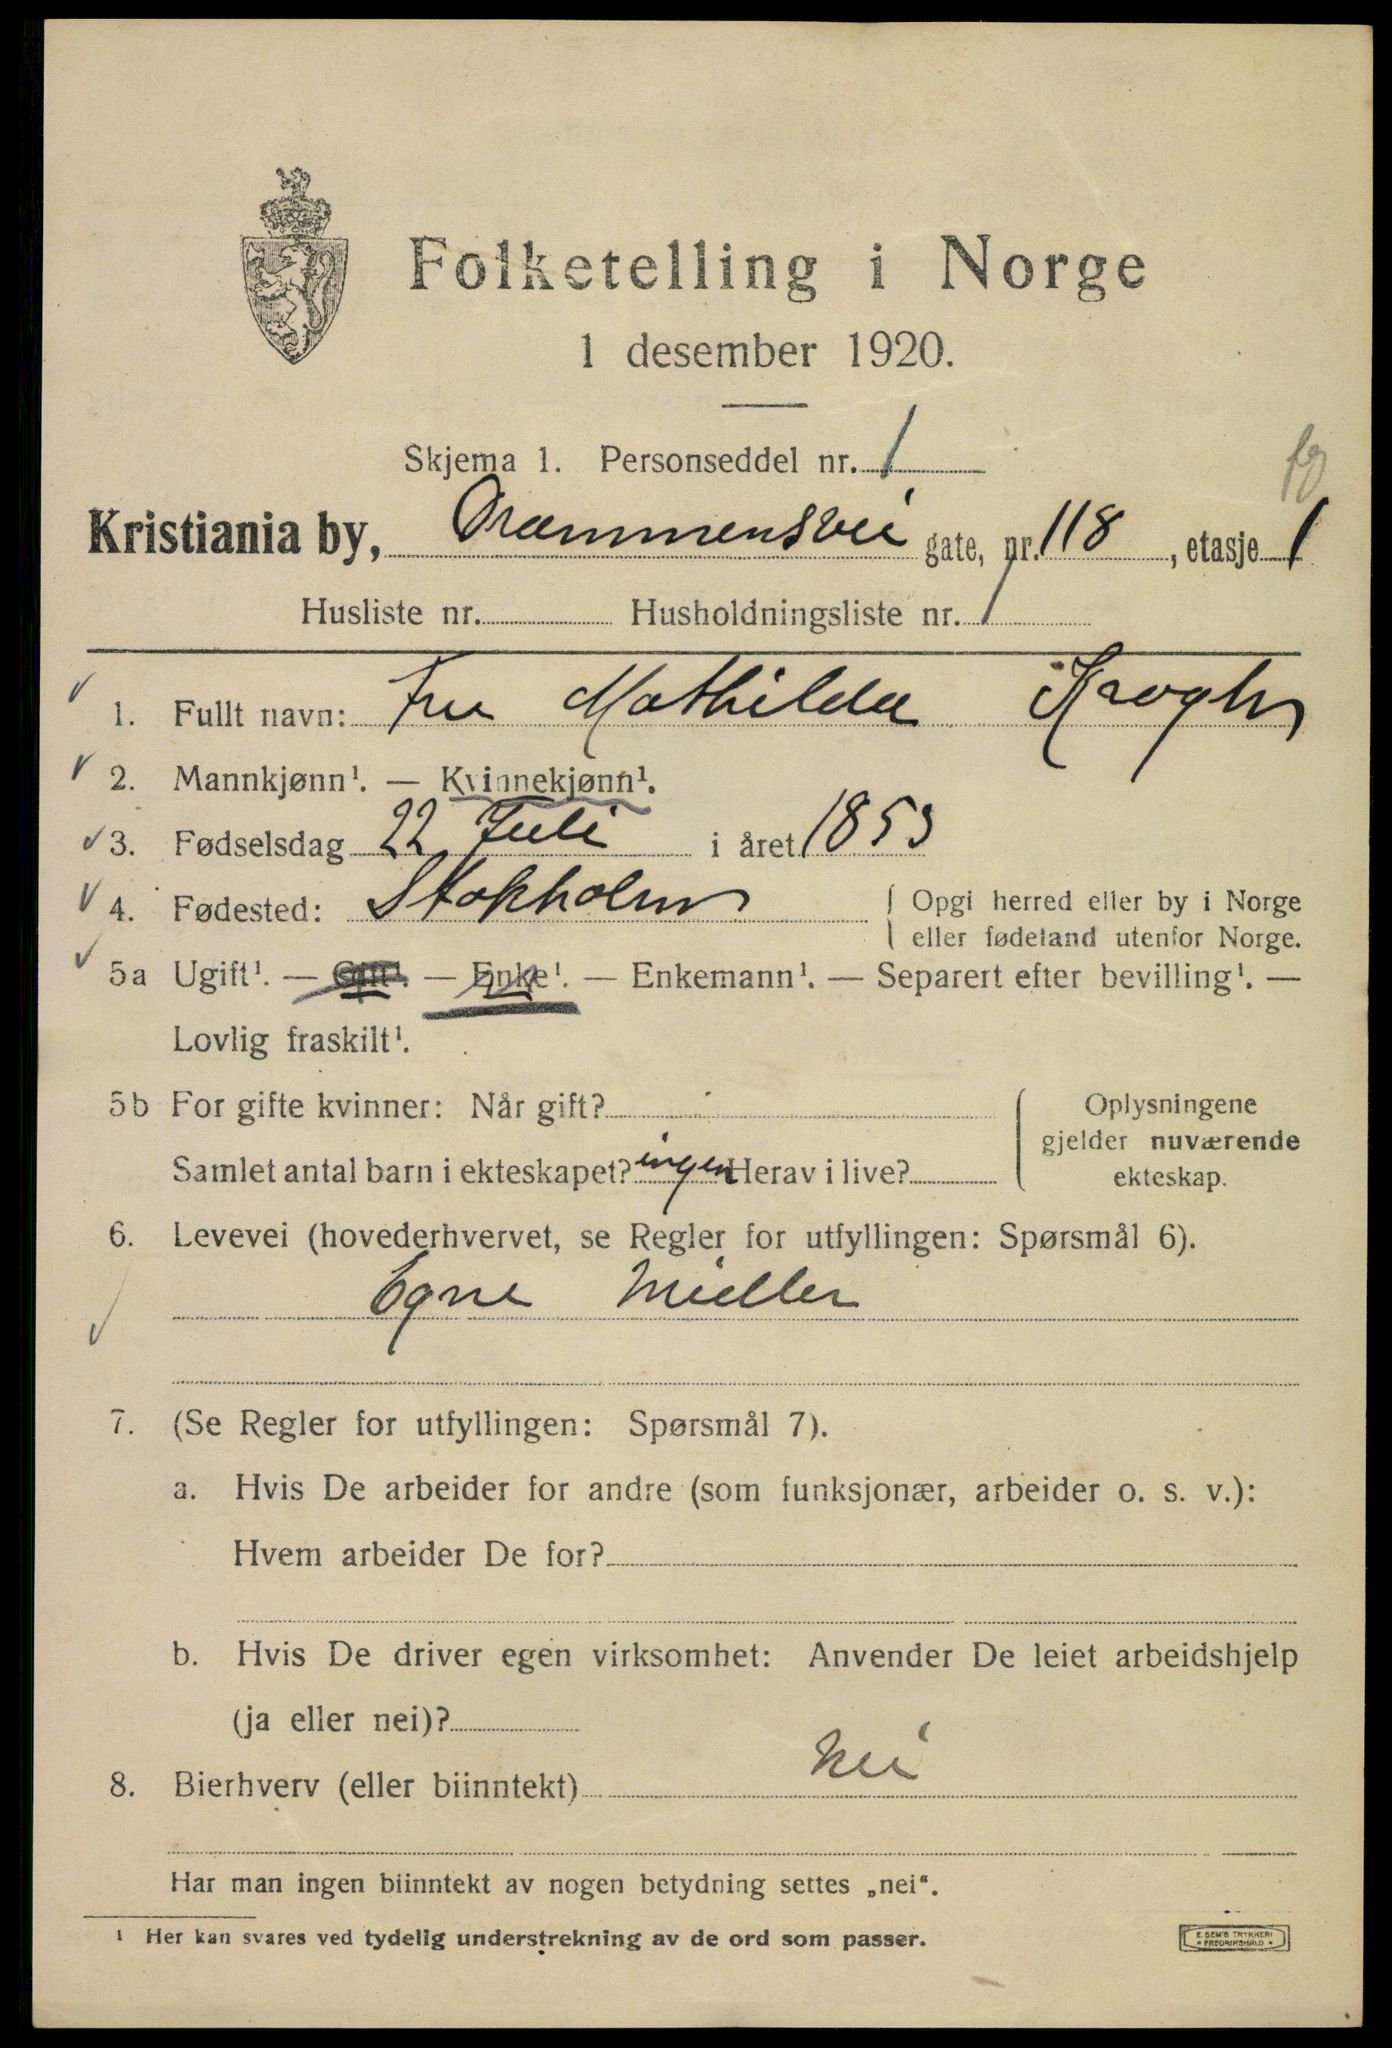 Folketelling i Norge
1 desember 1920.
Skjema 1. Personseddel nr. 1
Kristiania by, Drammensvei gate, nr. 118, etasje 1
Husliste nr. Husholdningsliste nr. 1
1. Fullt navn: Fru Mathilda Krogh
2. Mannkjønn¹. — Kvinnekjønn¹.
3. Fødselsdag 22 Juli i året 1853
4. Fødested: Stokholm { Opgi herred eller by i Norge
eller fødeland utenfor Norge.
5a Ugift¹. — Gift¹. — Enke¹. — Enkemann¹. — Separert efter bevilling¹. —
Lovlig fraskilt¹.
5b For gifte kvinner: Når gift? { Oplysningene
gjelder nuværende
Samlet antal barn i ekteskapet? ingen Herav i live? ekteskap.
6. Levevei (hovederhvervet, se Regler for utfyllingen: Spørsmål 6).
Egne Midler
7. (Se Regler for utfyllingen: Spørsmål 7).
a. Hvis De arbeider for andre (som funksjonær, arbeider o. s. v.):
Hvem arbeider De for?
b. Hvis De driver egen virksomhet: Anvender De leiet arbeidshjelp
(ja eller nei)?
8. Bierhverv (eller biinntekt) Nei
Har man ingen biinntekt av nogen betydning settes „nei“.
¹ Her kan svares ved tydelig understrekning av de ord som passer.
E. SEM'S TRYKKERI
• FREDRIKSHALD •